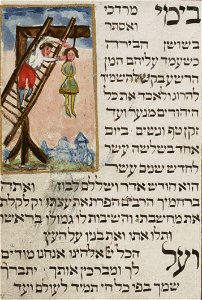 בימי מרדכי
ואסתר
בשושן הבירה
כשעמד עליהם המן
הרשע בקש להשמיד
להרוג ולאבד את כל
היהודים מנער ועד
זקן טף ונשים ביום
אחד בשלשה עשר
לחדש שנים עשר
הוא חודש אדר ושללם לבוז ואתה
ברחמיך הרבים הפרת את עצתו וקלקלת
את מחשבתו והשבות לו גמולו בראשו
ותלו אותו ואת בניו על העץ
ועל הכל ה אלהינו אנחנו מודים
לך ומברכין אותך יתברך
שמך בפי כל חי תמיד לעולם ועד